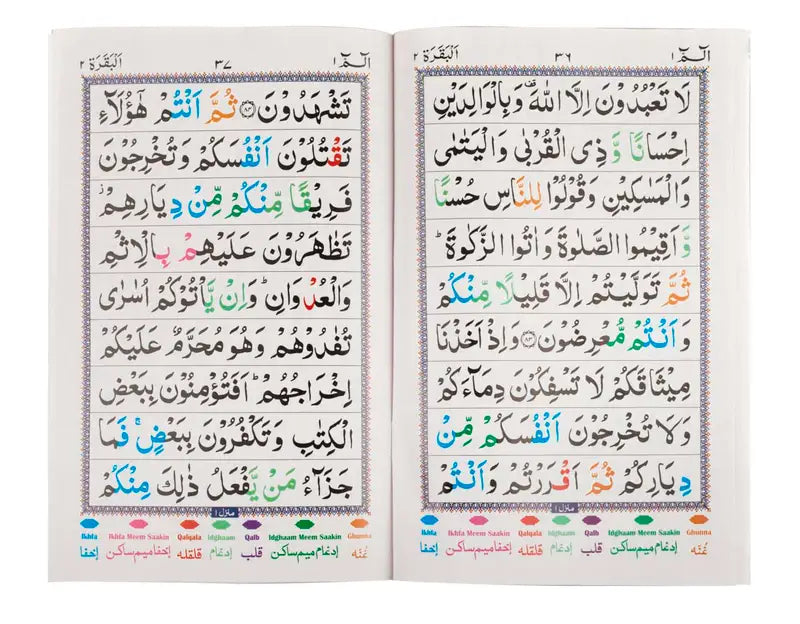 الٓمّٓ ١ ٣٦ اَلْبَقَرَة ٢
لَا تَعْبُدُوْنَ اِلَّا اللّٰهَ ۫ وَبِالْوَالِدَيْنِ
اِحْسَانًا وَّ ذِي الْقُرْبٰى وَالْيَتٰمٰى
وَالْمَسٰكِيْنِ وَقُوْلُوْا لِلنَّاسِ حُسْنًا
وَّ اَقِيْمُوا الصَّلٰوةَ وَاٰتُوا الزَّكٰوةَ ؕ
ثُمَّ تَوَلَّيْتُمْ اِلَّا قَلِيْلًا مِّنْكُمْ
وَ اَنْتُمْ مُّعْرِضُوْنَ ۝٨٣ وَاِذْ اَخَذْنَا
مِيْثَاقَكُمْ لَا تَسْفِكُوْنَ دِمَآءَكُمْ
وَلَا تُخْرِجُوْنَ اَنْفُسَكُمْ مِّنْ
دِيَارِكُمْ ثُمَّ اَقْرَرْتُمْ وَاَنْتُمْ
منزل ١
Ikhfa Ikhfa Meem Saakin Qalqala Idghaam Qalb Idghaam Meem Saakin Ghunna
إخفا إخفا ميم ساكن قلقله إدغام قلب إدغام ميم ساكن غُنّه
الٓمّٓ ١ ٣٧ اَلْبَقَرَة ٢
تَشْهَدُوْنَ ۝٨٤ ثُمَّ اَنْتُمْ هٰٓؤُلَآءِ
تَقْتُلُوْنَ اَنْفُسَكُمْ وَتُخْرِجُوْنَ
فَرِيْقًا مِّنْكُمْ مِّنْ دِيَارِهِمْ ؗ
تَظٰهَرُوْنَ عَلَيْهِمْ بِالْاِثْمِ
وَالْعُدْوَانِ ؕ وَاِنْ يَّاْتُوْكُمْ اُسٰرٰى
تُفٰدُوْهُمْ وَهُوَ مُحَرَّمٌ عَلَيْكُمْ
اِخْرَاجُهُمْ ؕ اَفَتُؤْمِنُوْنَ بِبَعْضِ
الْكِتٰبِ وَتَكْفُرُوْنَ بِبَعْضٍ ۚ فَمَا
جَزَآءُ مَنْ يَّفْعَلُ ذٰلِكَ مِنْكُمْ
منزل ١
Ikhfa Ikhfa Meem Saakin Qalqala Idghaam Qalb Idghaam Meem Saakin Ghunna
إخفا إخفا ميم ساكن قلقله إدغام قلب إدغام ميم ساكن غُنّه